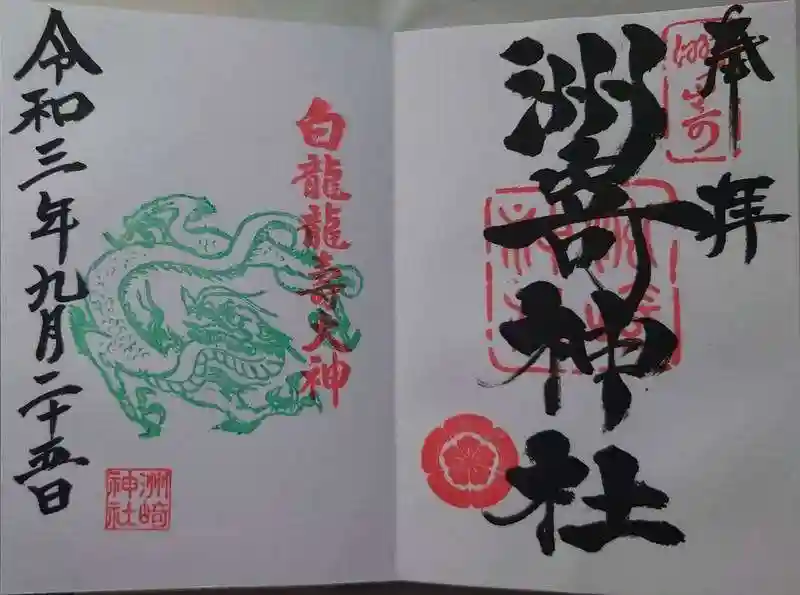 奉拝
洲嵜神社
白龍龍壽大神
令和三年九月二十五日
洲崎
神社